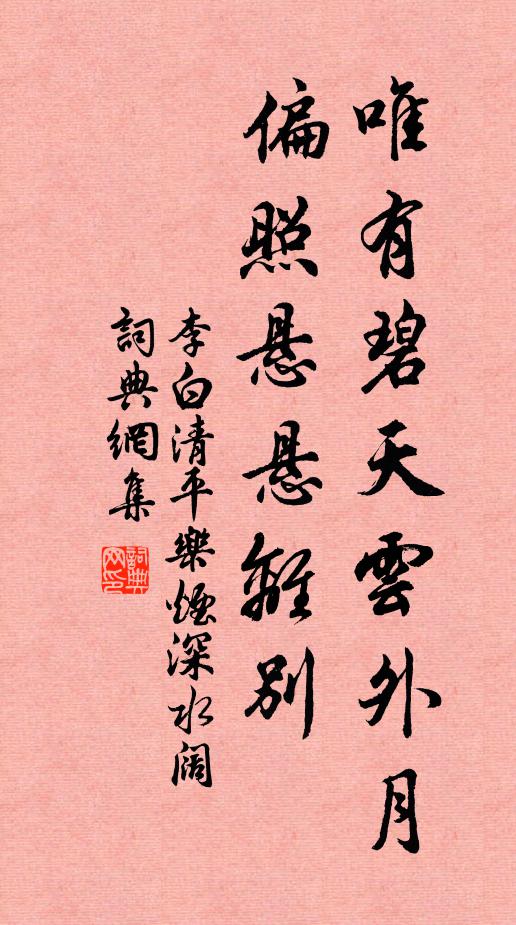 唯有碧天雲外月
偏照悬悬離別
李白清平樂煙深水阔
詞典網集
詞典网印